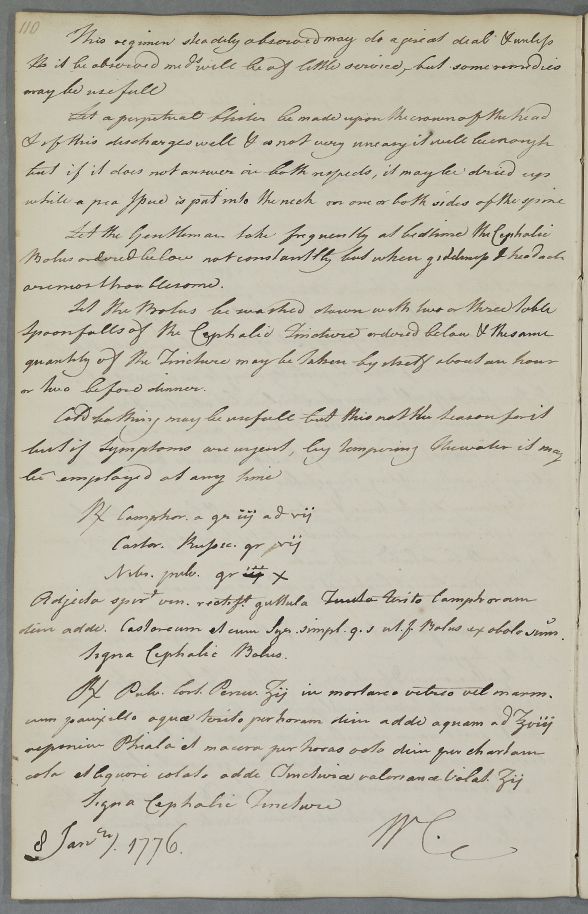 110
This regimen steadily observed may do a great deal & unless
it be observed medˢ will be of little service, but some remedies
may be usefull
Let a perpetual blister be made upon the crown of the head
& if this discharges well & is not very uneasy it will be enough
but if it does not answer in both respects, it may be dried up
while a pea Issue is put into the neck on one or both sides of the spine
Let the Gentleman take frequently at bedtime the Cephalic
Bolus ordered below not constantly but when giddiness & headach
are most troublesome.
Let the Bolus be washed down with two or three table
spoonfulls of the Cephalic Tincture ordered below & the same
quantity of the Tincture may be taken by itself about an hour
or two before dinner.
Cold bathing may be usefull but this not the season for it
but if symptoms are urgent, by tempering the water it may
be employed at any time
℞ Camphor. a gr iij ad vij
Castor. Russic. gr vij
Nitri. pulv. gr x
Adjecta spirᵗ vin. rectifᵗ guttula terito Camphoram
dein adde. Castoreum et cum Syr. simpl. q. s ut. f. Bolus ex obolo sum.
Signa Cephalic Bolus.
℞ Pulv. Cort. Peruv. ℥ij in mortareo vitreo vel marm.
cum pauxillo aquæ terito per horam dein adde aquam ad ℥viij
Phiala et macera per horas octo dein per chartam
cola et liquori colato adde Tincturæ valerianæ Volat. ℥ij
Signa Cephalic Tincture
8 Janʳʸ. 1776. WC.